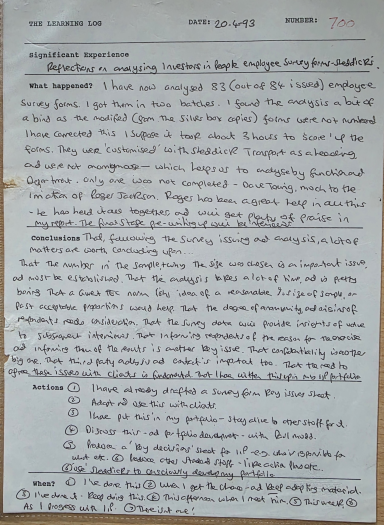 THE LEARNING LOG DATE: 20.4.93 NUMBER: 700
Significant Experience
Reflections on analysing Investors in People employee survey forms - Sheddicks.
What happened? I have now analysed 83 (out of 84 issued) employee
survey forms. I got them in two batches. I found the analysis a bit of
a bind as the modified (from the Silver box copies) forms were not numbered
I have corrected this. I suppose it took about 3 hours to 'score' up the
forms. They were 'customised' with Sheddick Transport as a heading
and were not anonymous — which helps us to analyse by function and
Department. Only one was not completed - Dave Young, much to the
of Roger Jackson. Roger has been a great help in all this
- he has held it all together and will get plenty of praise in
my report. The final stage pre-writing up will be interviews
Conclusions That, following the survey issuing and analysis, a lot of
matters are worth concluding upon.
That the number in the sample & why the size was chosen is an important issue,
and must be established. That the analysis takes a lot of time, and is pretty
boring. That a Guest TEC norm idea of a reasonable % size of sample, or
past acceptable proportions would help. That the degree of anonymity and of
respondents needs consideration. That the survey data will provide insights of value
to subsequent interviews. That informing respondents of the reason for the exercise
and informing them of the results is another key issue. That confidentiality is another
big one. That third party analysis and contact is important too. That the need to
agree these issues with clients is fundamental. That I have written this up in my IIP portfolio
Actions ① I have already drafted a survey form key issues sheet.
② Adapt and use this with clients.
③ I have put this in my portfolio - stay alive to other stuff for it.
④ Discuss this - and portfolio development - with Paul
⑤ Produce a 'key decisions' sheet for IIP - eg who is responsible for
what etc. ⑥ Produce other stuff - like action plans etc.
⑥ Use Sheddicks to consciously develop my portfolio
When? ① I've done this ② When I get the chance - and keep adapting material.
③ I've done it - Keep doing this ④ This afternoon when I meet him. ⑤ This week. ⑥
As I progress with IIP